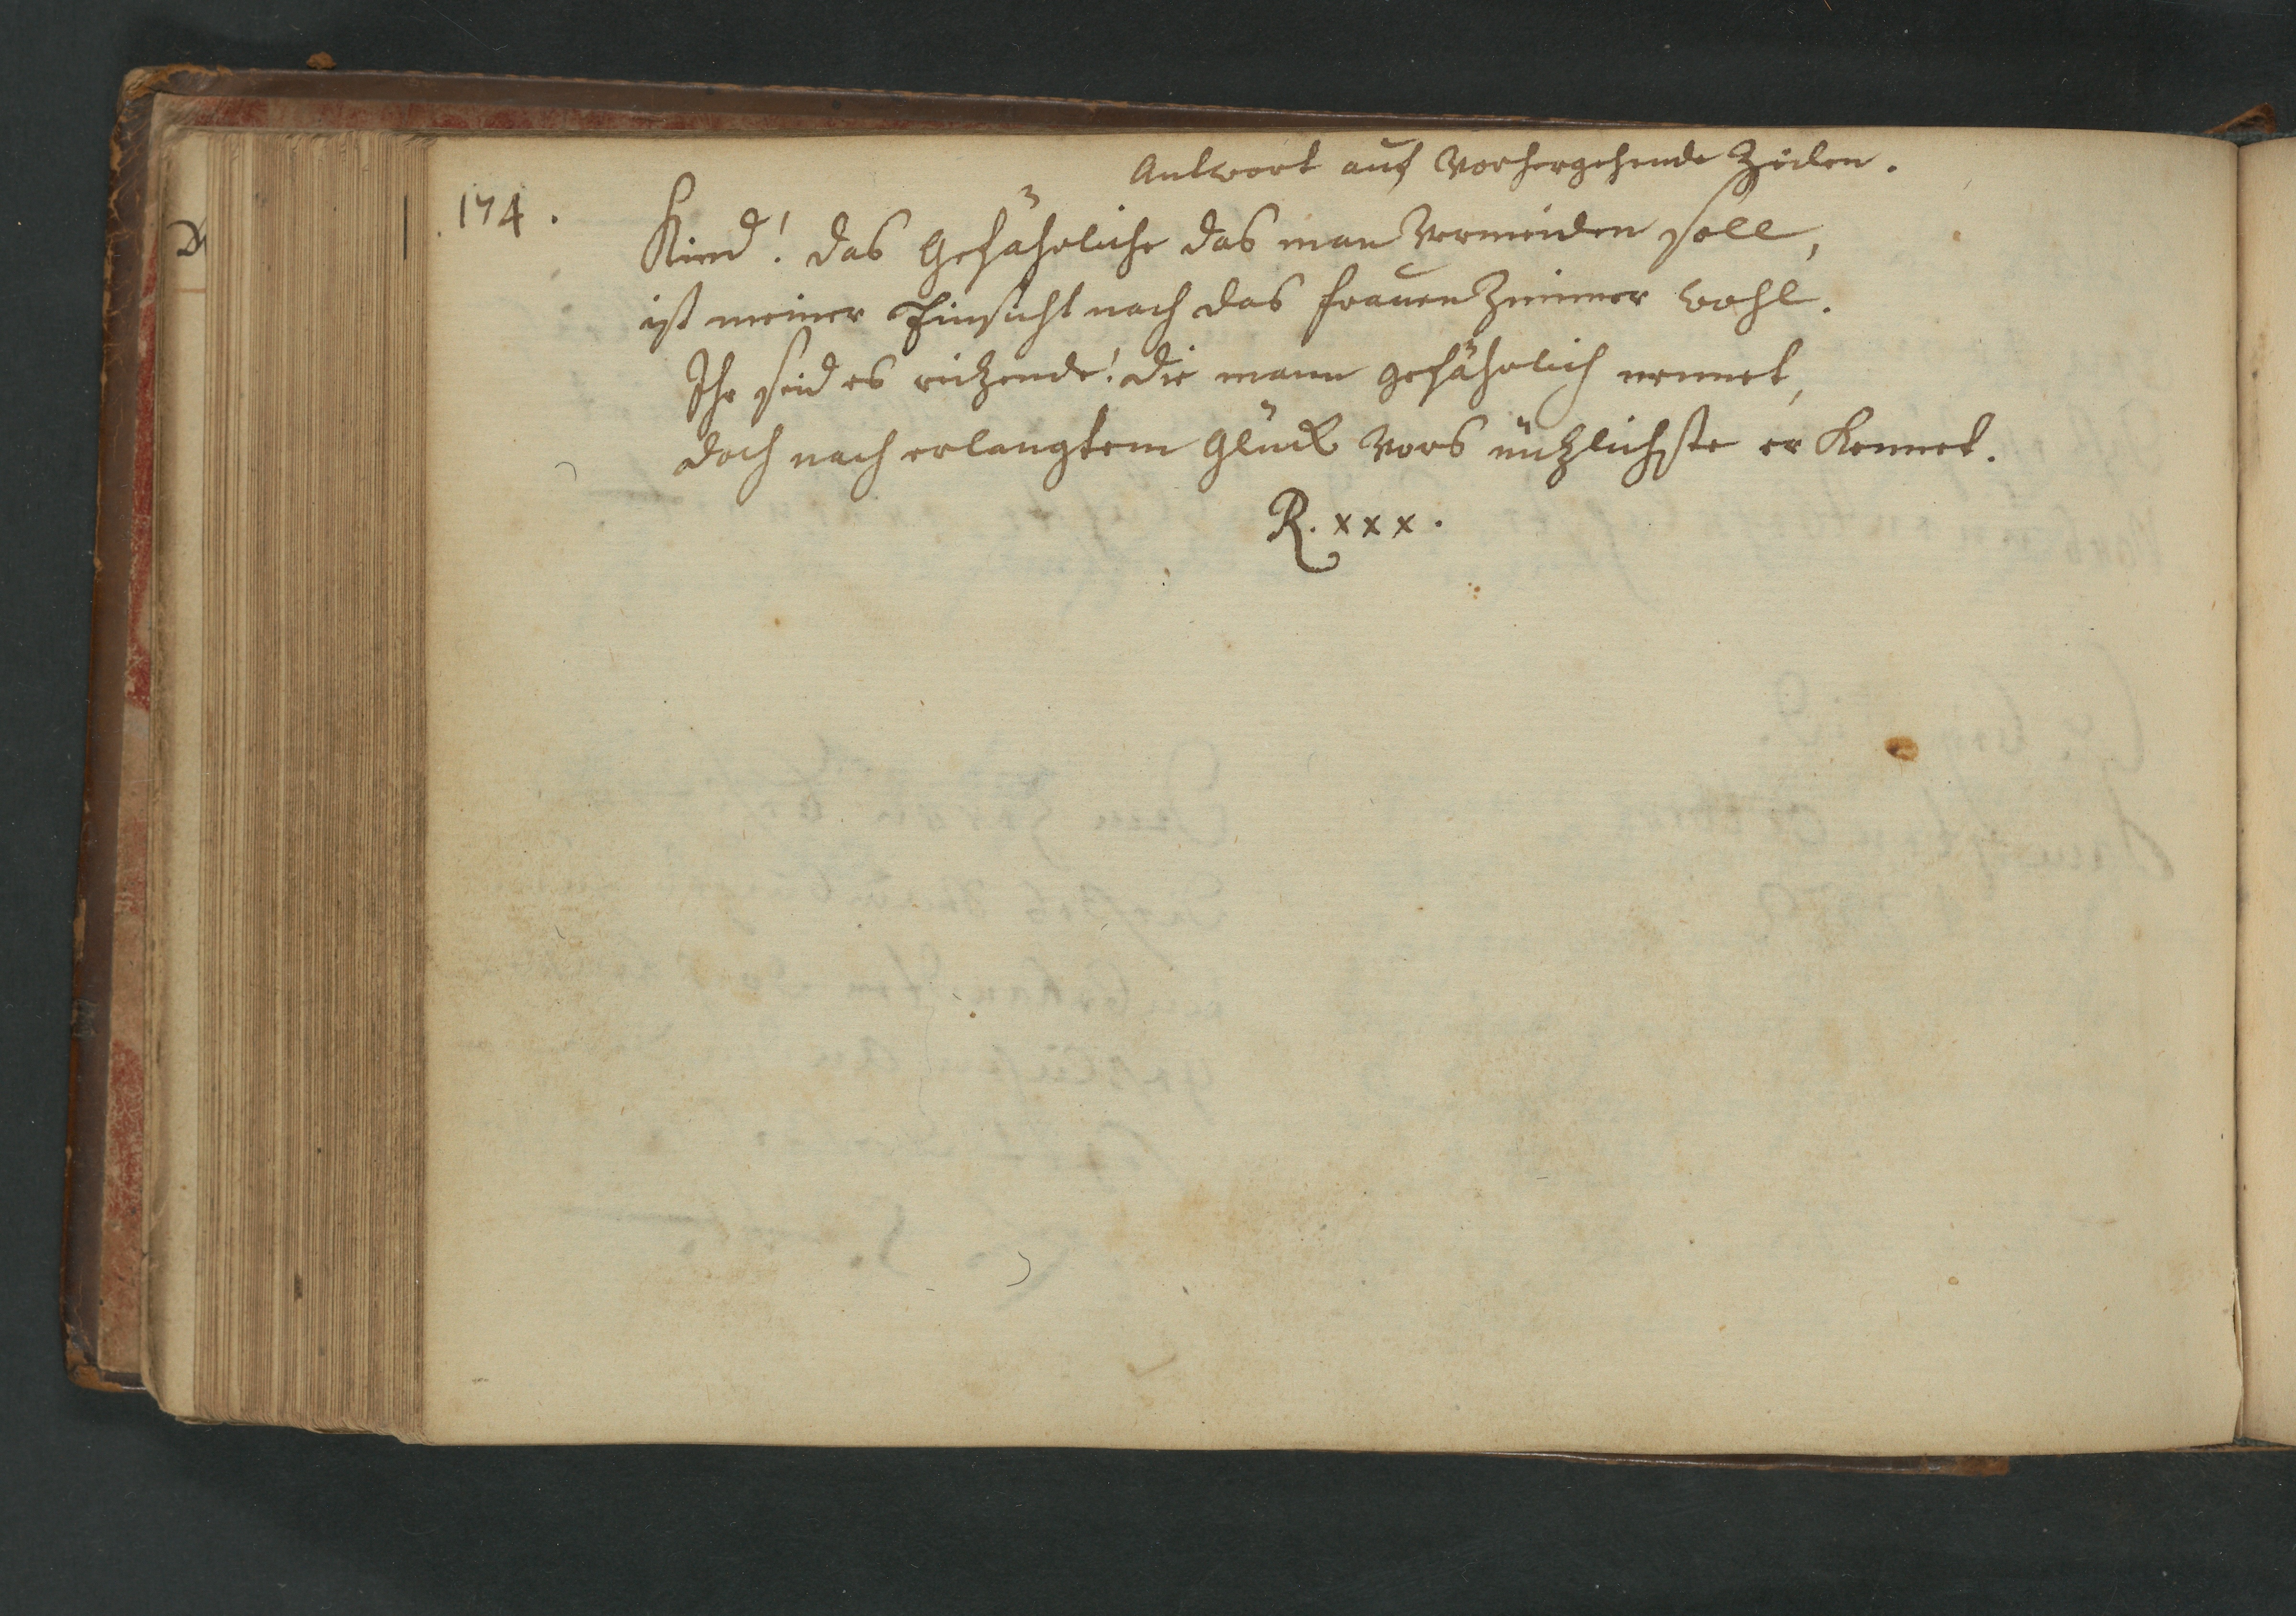 Antwort auf Vorhergehende Zeilen.
174.
Kind! das Gefährliche das man Vermeiden soll,
ist meiner Einsicht nach das Frauen Zimmer wohl.
Ihr seid es reitzende! die mann gefährlich nennet,
doch nach erlangtem Glück Vors nützlichste er Kennet.
R. xxx.